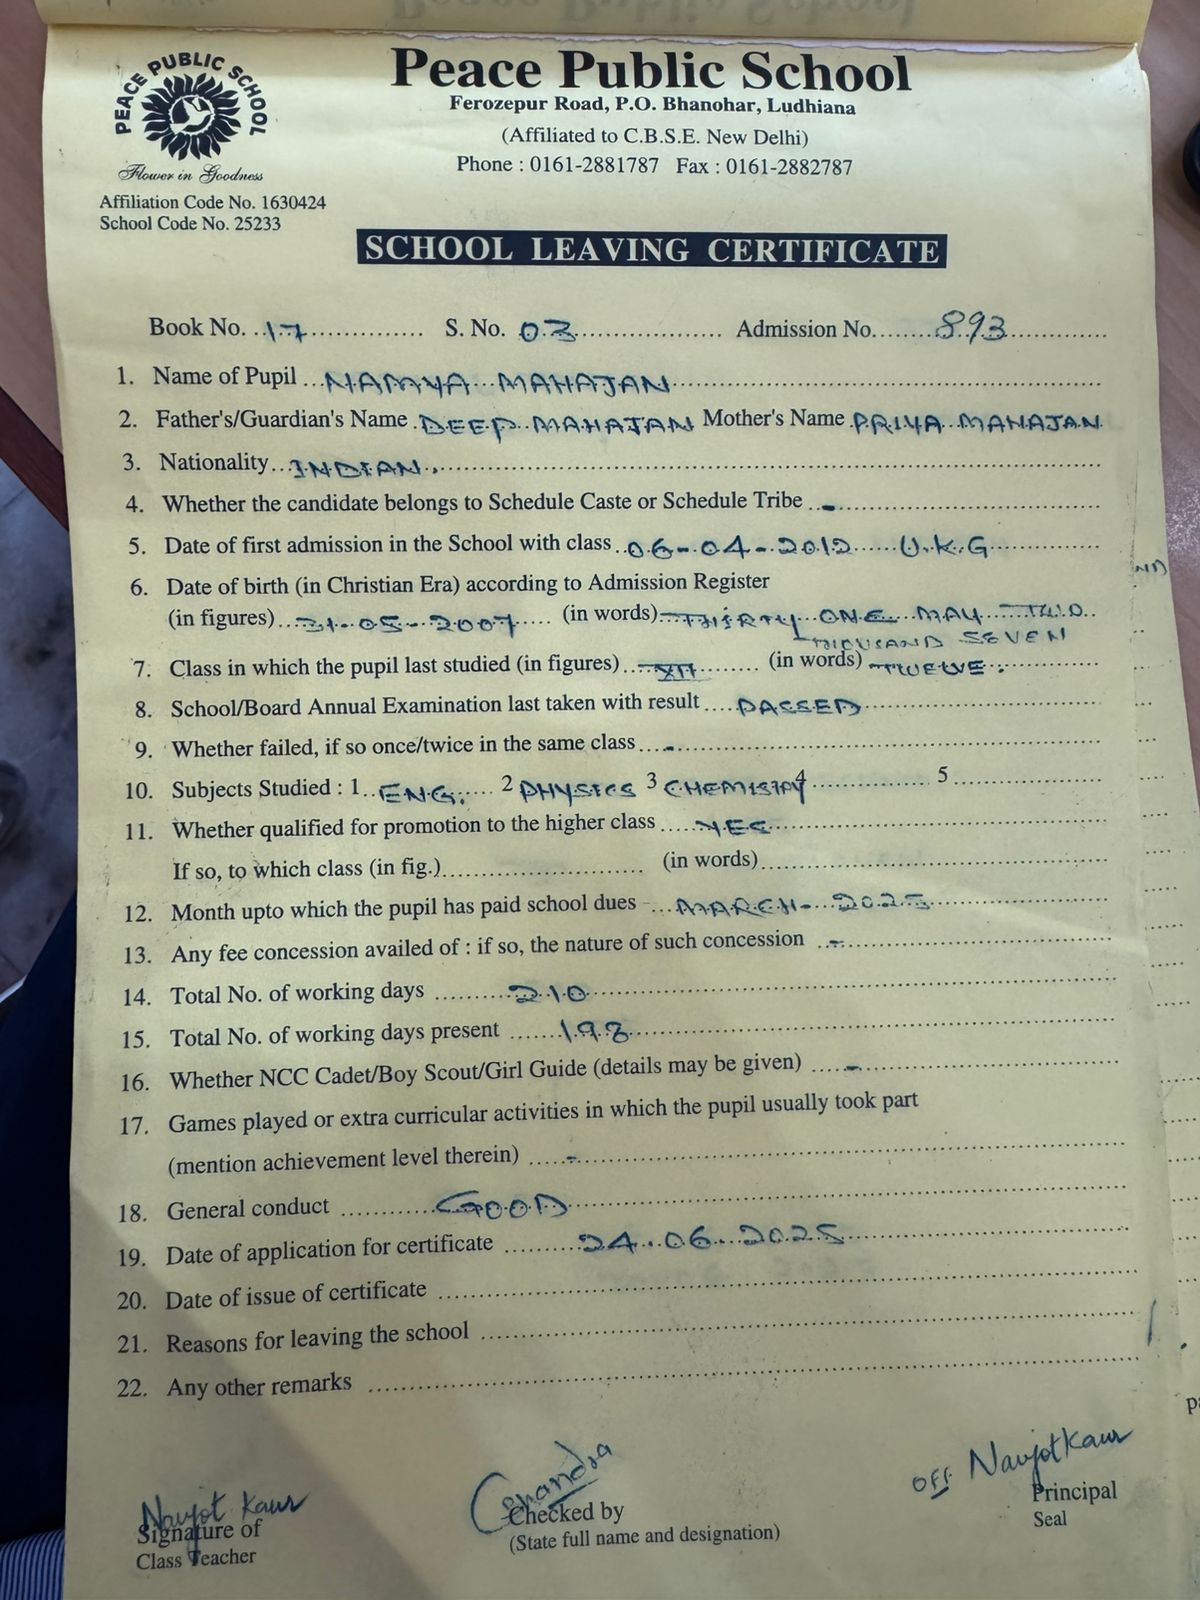 PEACE PUBLIC SCHOOL
Flower in Goodness
Affiliation Code No. 1630424
School Code No. 25233
Peace Public School
Ferozepur Road, P.O. Bhanohar, Ludhiana
(Affiliated to C.B.S.E. New Delhi)
Phone : 0161-2881787 Fax : 0161-2882787
SCHOOL LEAVING CERTIFICATE
Book No. 17 S. No. 03 Admission No. 893
1. Name of Pupil NAMYA MAHAJAN
2. Father's/Guardian's Name DEEP MAHAJAN Mother's Name PRIYA MAHAJAN
3. Nationality INDIAN.
4. Whether the candidate belongs to Schedule Caste or Schedule Tribe -
5. Date of first admission in the School with class 06-04-2012 U.K.G
6. Date of birth (in Christian Era) according to Admission Register
(in figures) 31-05-2007 (in words) THIRTY ONE MAY TWO
THOUSAND SEVEN
7. Class in which the pupil last studied (in figures) XII (in words) TWELVE.
8. School/Board Annual Examination last taken with result PASSED
9. Whether failed, if so once/twice in the same class -
10. Subjects Studied : 1. ENG. 2 PHYSICS 3 CHEMISTRY 4 5
11. Whether qualified for promotion to the higher class YES
If so, to which class (in fig.) (in words)
12. Month upto which the pupil has paid school dues MARCH-2025
13. Any fee concession availed of : if so, the nature of such concession -
14. Total No. of working days 210
15. Total No. of working days present 193
16. Whether NCC Cadet/Boy Scout/Girl Guide (details may be given) -
17. Games played or extra curricular activities in which the pupil usually took part
(mention achievement level therein) -
18. General conduct GOOD
19. Date of application for certificate 24.06.2025
20. Date of issue of certificate
21. Reasons for leaving the school
22. Any other remarks
Navjot Kaur Chandra Off Navjot Kaur
Signature of Checked by Principal
Class Teacher (State full name and designation) Seal